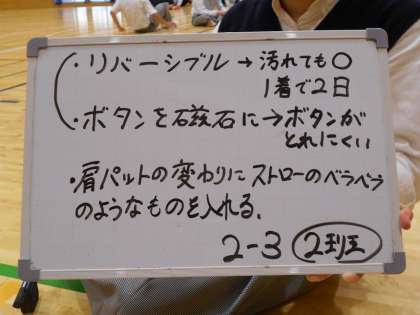 ・リバーシブル→汚れても○
1着で2日
・ボタンを磁石に→ボタンが
とれにくい
・肩パットの変わりにストローのベラベラ
のようなものを入れる。
2-3 2班